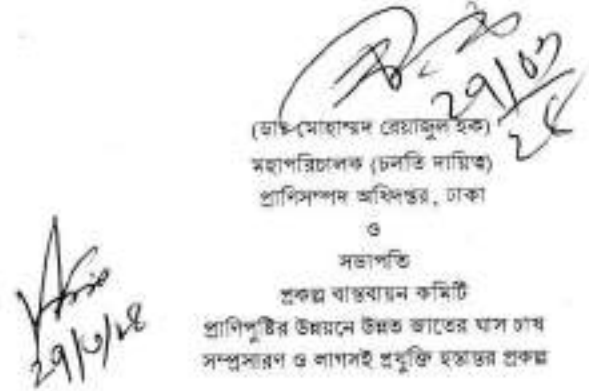 ২৭/০৩/২৪
(ডাঃ মোহাম্মদ রেয়াজুল হক)
মহাপরিচালক (চলতি দায়িত্ব)
প্রাণিসম্পদ অধিদপ্তর, ঢাকা
ও
সভাপতি
প্রকল্প বাস্তবায়ন কমিটি
প্রাণিপুষ্টির উন্নয়নে উন্নত জাতের ঘাস চাষ
সম্প্রসারণ ও লাগসই প্রযুক্তি হস্তান্তর প্রকল্প